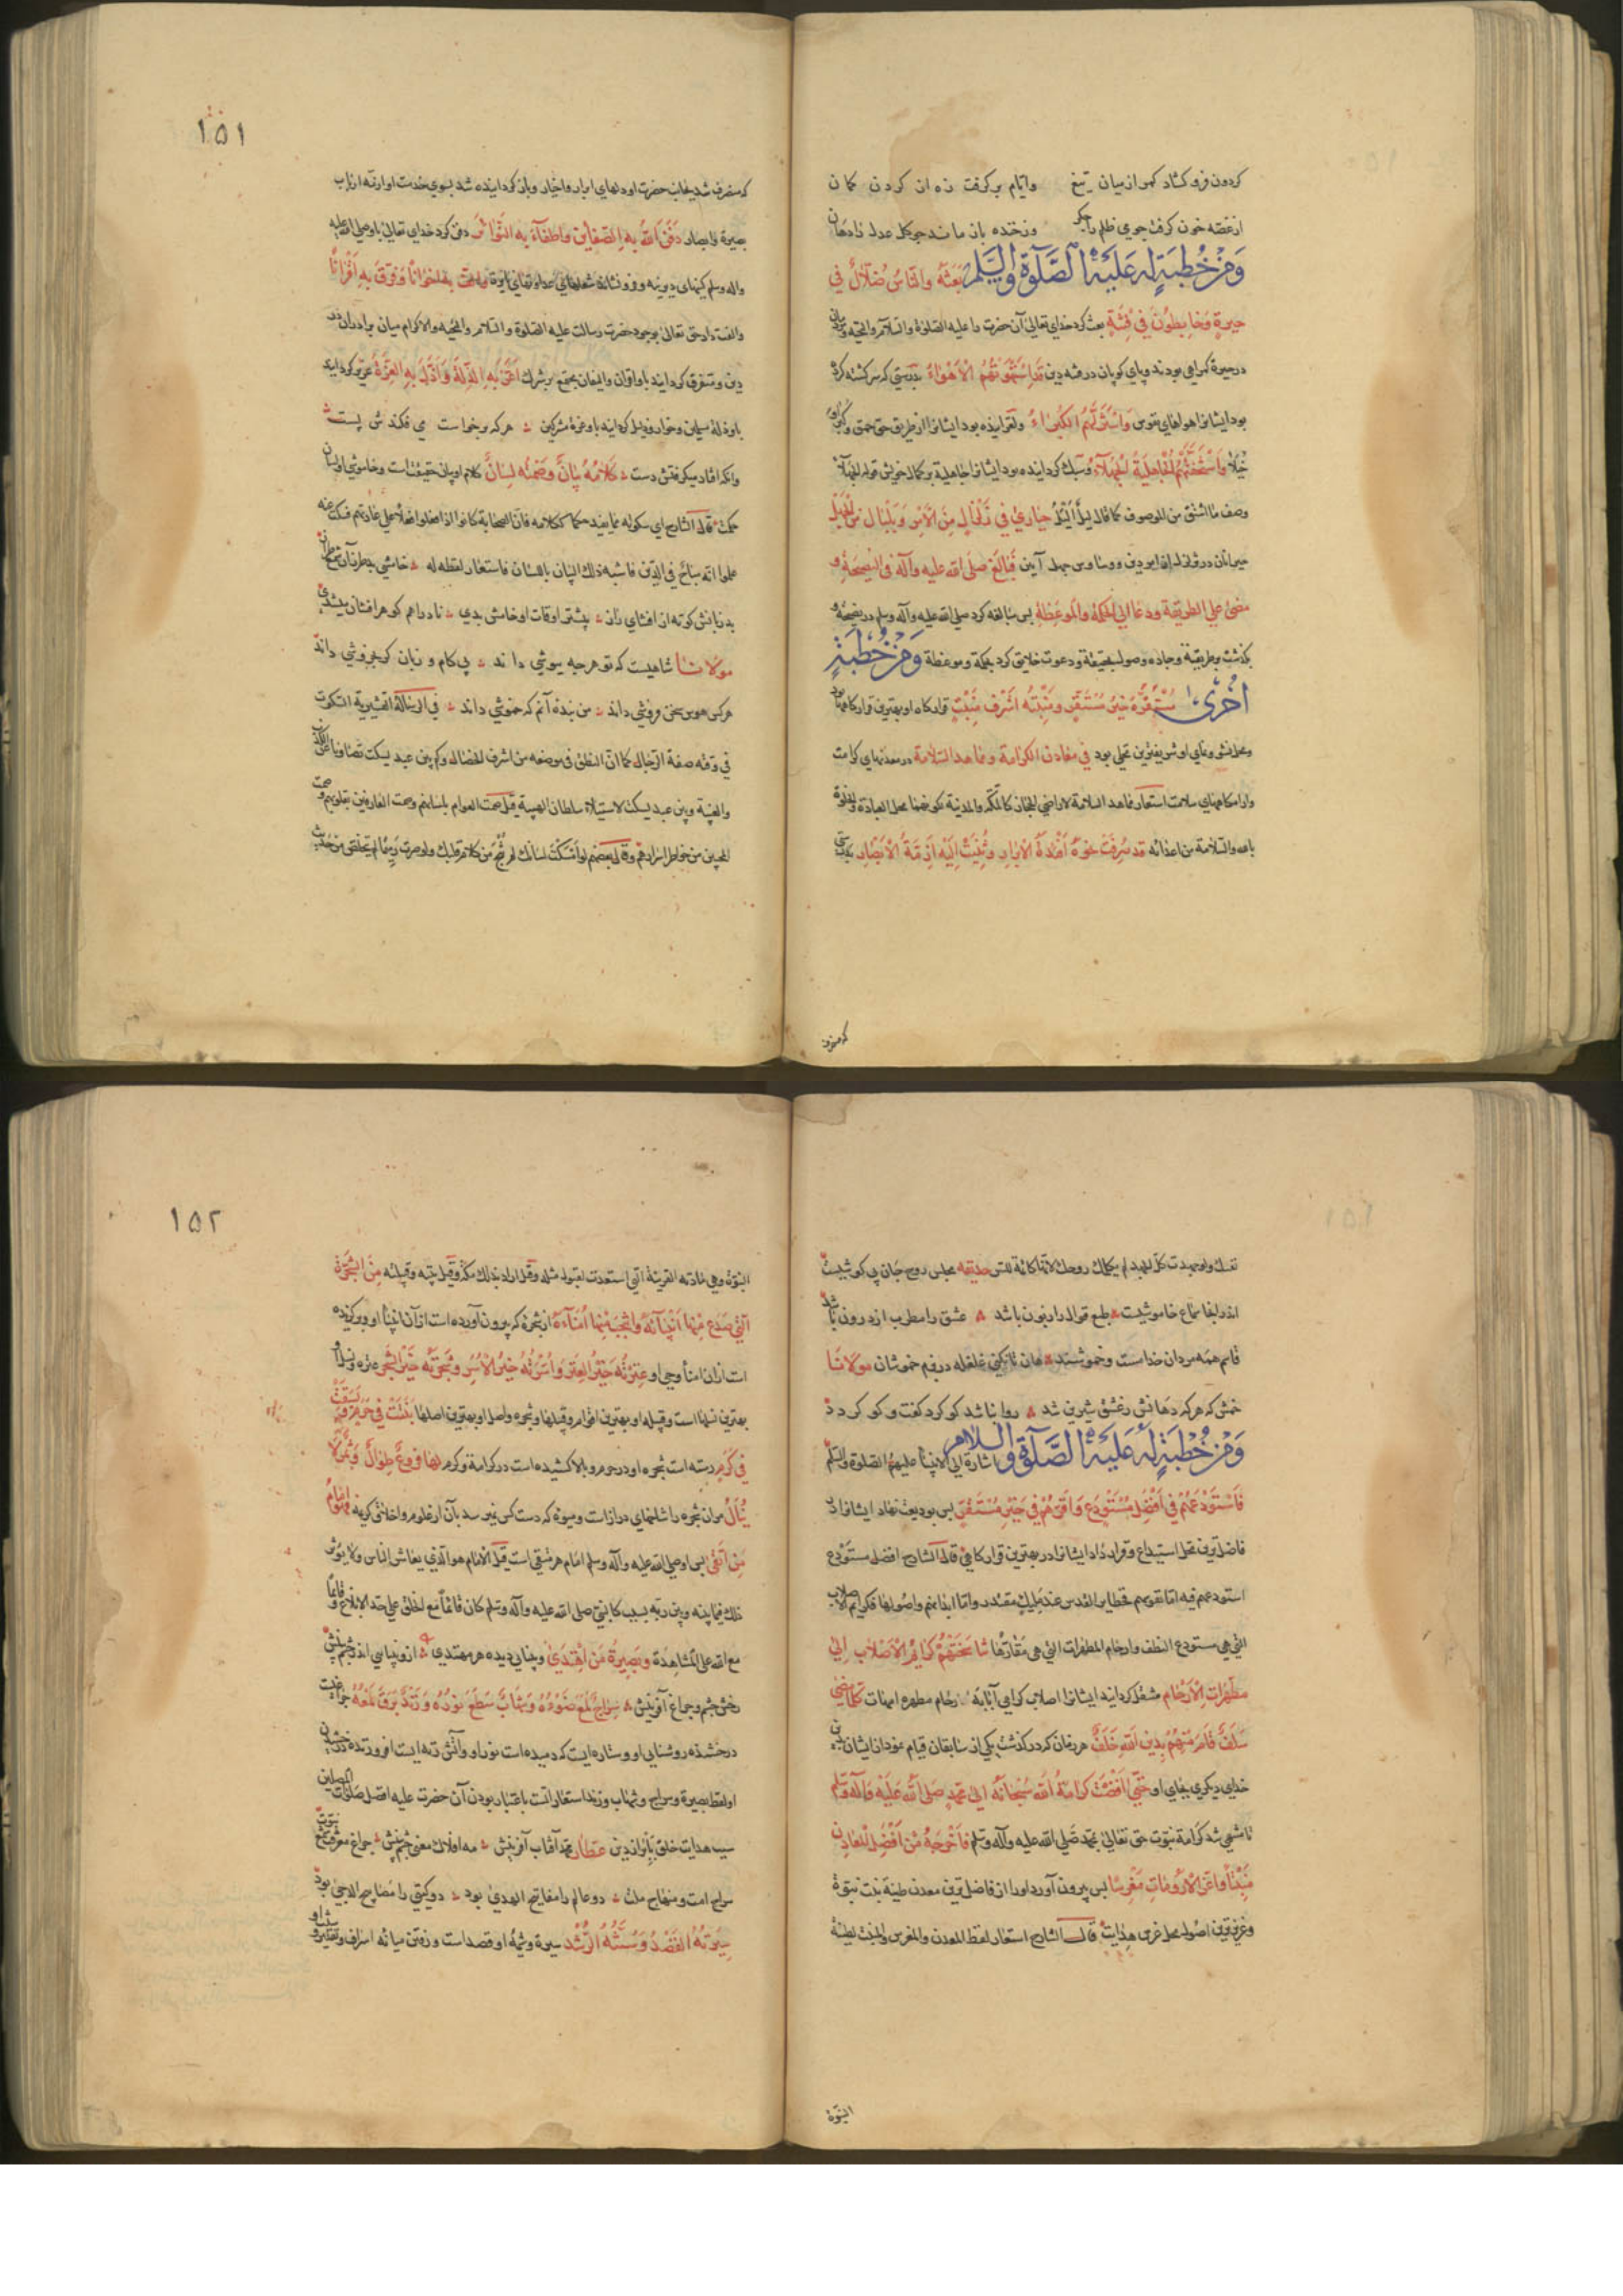 كردون فرو كشاد كمر از ميان تيغ وايام بر كرفت زه از كردن كمان
از غصه خون كرفت جوي ظلم را جكر وز خنده باز ماند جو كل عدل را دهان
وَمِنْ خُطْبَةٍ لَهُ عَلَيْهِ الصَّلوٰةُ وَالسَّلام بَعَثَهُ وَالنَّاسُ ضُلَّالٌ فِي
حَيرةٍ وَخَابِطُونَ فِي فِتْنَةٍ بعث كرد خداي تعالى آن حضرت را عليه الصلوة والسلام والتحية
در حيرة كمراهي بودند و پاي كوبان در فتنه دين قَدِ اسْتَهْوَتْهُمُ الْأَهْوَاءُ بدرستي كه سركشته كرده
بود ايشانرا هواهاي نفوس وَاسْتَزَلَّتْهُمُ الْكُبَرَاءُ ولغزانيده بود ايشانرا از طريق حق
وَاسْتَخَفَّتْهُمُ الْجَاهِلِيَّةُ الْجَهْلَاءُ وسبك كردانيده بود ايشانرا جاهلية
وصف ما اشتق من الموصوف كما قال ليل اليل حَيَارَىٰ فِي زَلْزَالٍ مِنَ الْأَمْرِ وَبَلْبَالٍ مِنَ الْجَهْلِ
حيرانان در زلزله فَبَالَغَ صلى الله عليه وآله فِي النَّصِيحَةِ وَ
مَضَىٰ عَلَى الطَّرِيقَةِ وَدَعَا إِلَى الْحِكْمَةِ وَالْمَوْعِظَةِ بس مبالغه كرد صلى الله عليه وآله وسلم در نصيحة و
بكذشت بر طريقة ودعوت خلايق كرد بحكمة وموعظة وَمِنْ خُطْبَةٍ
أُخْرىٰ مُسْتَقَرُّهُ خَيْرُ مُسْتَقَرٍّ وَمَنْبِتُهُ أَشْرَفُ مَنْبِتٍ قراركاه او بهترين قراركاهها بود
ومحل نشو ونماي او شريفترين محلي بود فِي مَعَادِنِ الْكَرَامَةِ وَمَمَاهِدِ السَّلَامَةِ در معدنهاي كرامت
وارامكاههاي سلامت استعار مماهد السلامة لاراضي الحجاز كالمكة والمدينة لكونهما محل العبادة والخلوة
بالله والسلامة من اعدائه قَدْ صُرِفَتْ نَحْوَهُ أَفْئِدَةُ الْأَبْرَارِ وَثُنِيَتْ إِلَيْهِ أَزِمَّةُ الْأَبْصَارِ بدرستي
كه مصروف
١٥١
كه مصروف شد بجانب حضرت او دلهاي ابرار واخيار وباز كردانيده شد بسوي حضرت او ازمه ارباب
بصيرة وابصار دَفَنَ اللهُ بِهِ الضَّغَايِنَ وَأَطْفَأَ بِهِ النَّوَائِرَ دفن كرد خداي تعالى باو صلى الله عليه
وآله وسلم كينهاي ديرينه وفرو نشاند شعلهاي وَأَلَّفَ بِهِ إِخْوَانًا وَفَرَّقَ بِهِ أَقْرَانًا
والفت داد حق تعالى بوجود حضرت رسالت عليه الصلوة والسلام والتحية والاكرام ميان برادران در
دين ومتفرق كردانيد باو اقران مجتمع بر شرك أَعَزَّ بِهِ الذِّلَّةَ وَأَذَلَّ بِهِ الْعِزَّةَ عزيز كردانيد
باو ذلة مسلمين وخوار وذليل كردانيد باو عزة مشركين هر كه برخواست مي فكندش پست
وانكه افتاد ميكرفتش دست كَلَامُهُ بَيَانٌ وَصَمْتُهُ لِسَانٌ كلام او بيان حقيقتست وخاموشي او لسان
حكمت قال الشارح اي سكوته مما يفيد حكما ككلامه فان الصحابة كانوا اذا فعلوا فعلا على عادتهم فسكت عنه
علموا انه مباح في الدين فاشبه ذلك البيان باللسان فاستعار لفظه له
به زبانش كوته از افشاي راز بيشتر اوقات او خامش بدي تا در اهم كوهر افشان ميشدي
مولانا شاهيست كه تو هرجه بپوشي داند بي كام و زبان كر بخروشي داند
هركس هوس سخن فروشي داند من بنده آنم كه خموشي داند في الرسالة القشيرية السكوت
في وقته صفة الرجال كما ان النطق في موضعه من اشرف الخصال وكم بين عبد يسكت تصاونا عن الكذب
والغيبة وبين عبد يسكت لاستيلاء سلطان الهيبة قيل صمت العوام بلسانهم وصمت العارفين بقلوبهم وصمت
المحبين من خواطر اسرارهم وقال بعضهم لو اسكت لسانك لم تنج من كلام قلبك ولو صرت رميما لم تتخلص من حديث
نفسك ولو جهدت كل الجهد لم يكلمك روحك لانها كاتمة للسر حديقه مجلس روح جان بي كوشيست
اندر انجا سماع خاموشيست طبع قوال را زبون باشد عشق را مطرب از درون باشد
قاسم همه مردان خدا مست وخموشند هان تا نكني غلغله در بزم خموشان مولانا
خمش كه هر كه دهانش زعشق شيرين شد روا نباشد كو كرد كفت و كو كردد
وَمِنْ خُطْبَةٍ لَهُ عَلَيْهِ الصَّلوٰةُ وَالسَّلام اشارة الى الانبياء عليهم الصلوة والسلم
فَاسْتَوْدَعَهُمْ فِي أَفْضَلِ مُسْتَوْدَعٍ وَأَقَرَّهُمْ فِي خَيْرِ مُسْتَقَرٍّ بس بوديعت نهاد ايشانرا در
فاضلترين محل استيداع وقرار داد ايشانرا در بهترين قراركاهي قال الشارح افضل مستودع
استودعهم فيه اما نفوسهم فحظاير القدس عند مليك مقتدر واما ابدانهم واصولها فكرايم الاصلاب
التي هي مستودع النطف وارحام المطهرات التي هي مقارها تَنَاسَخَتْهُمْ كَرَائِمُ الْأَصْلَابِ إِلَى
مُطَهَّرَاتِ الْأَرْحَامِ منتقل كردانيد ايشانرا اصلاب كرامي آبا به ارحام مطهره امهات كُلَّمَا مَضَىٰ
سَلَفٌ قَامَ مِنْهُمْ بِدِينِ اللهِ خَلَفٌ هر زمان كه در كذشت يكي از سابقان قيام نمود از ايشان بدين
خداي ديكري بجاي او حَتَّىٰ أَفْضَتْ كَرَامَةُ اللهِ سُبْحَانَهُ إِلَىٰ مُحَمَّدٍ صَلَّى اللهُ عَلَيْهِ وَآلِهِ وَسَلَّم
تا منتهي شد كرامة نبوت حق تعالى بمحمد صلى الله عليه وآله وسلم فَأَخْرَجَهُ مِنْ أَفْضَلِ الْمَعَادِنِ
مَنْبِتًا وَأَعَزِّ الْأَرُومَاتِ مَغْرِسًا بس بيرون آورد اورا از فاضلترين معدن طينة نبت نبوة
وعزيزترين اصول محل غرس هدايت قال الشارح استعار لفظ المعدن والمغرس والمنبت لطينة
النبوة
١٥٢
النبوة وهي مادته القريبة التي استعدت لقبول مثله وقيل اراد بذلك مكة وقيل بيته وقبيلته مِنَ الشَّجَرَةِ
الَّتِي صَدَعَ مِنْهَا أَنْبِيَاءَهُ وَانْتَجَبَ مِنْهَا أُمَنَاءَهُ از شجرة كه بيرون آورده است از آن انبياء او وبركزيده
است از ان امناء وحي او عِتْرَتُهُ خَيْرُ الْعِتَرِ وَأُسْرَتُهُ خَيْرُ الْأُسَرِ وَشَجَرَتُهُ خَيْرُ الشَّجَرِ عتره ونسل او
بهترين نسلها است وقبيله او بهترين اقوام وقبيلها وشجره واصل او بهترين اصلها نَبَتَتْ فِي حَرَمٍ وَبَسَقَتْ
فِي كَرَمٍ رسته است شجره او در حرم وبالا كشيده است در كرامة وكرم لَهَا فُرُوعٌ طِوَالٌ وَثَمَرٌ لَا
يُنَالُ مر ان شجره را شاخهاي درازاست وميوه كه دست كس نميرسد بآن از علوم واخلاق كريمه فَهُوَ إِمَامُ
مَنِ اتَّقَىٰ بس او صلى الله عليه وآله وسلم امام هر متقي است قيل الامام هو الذي يعاشر الناس ولا يؤثر
ذلك فيما بينه وبين ربه بسبب كالنبي صلى الله عليه وآله وسلم كان قائما مع الخلق على حد الابلاغ وقائما
مع الله على المشاهدة وَبَصِيرَةُ مَنِ اهْتَدَىٰ وبينايي ديده هر مهتدي
رخش جشم وجراغ آفرينش سِرَاجٌ لَمَعَ ضَوْءُهُ وَشِهَابٌ سَطَعَ نُورُهُ وَزَنْدٌ بَرَقَ لَمْعُهُ جراغيست
درخشنده روشنايي او وستاره ايست كه دميده است نور او وآتش زنه ايست افروزنده درخشيدن
او لفظ بصيرة وسراج وشهاب وزند استعار است باعتبار بودن آن حضرت عليه افضل صلوات المصلين
سبب هدايت خلق بانوار دين عطار محمد آفتاب آفرينش مه افلاك معنى جشم بينش جراغ معرفت شمع نبوت
سراج امت ومنهاج ملت دو عالم را مفاتيح الهدى بود دو كيتي را مصابيح الدجى بود
سِيرَتُهُ الْقَصْدُ وَسُنَّتُهُ الرُّشْدُ سيرة وشيمة او قصد است ورفتن ميانه اسراف وتقتير وسنت او